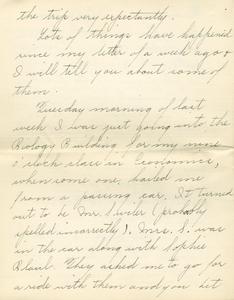 the trip very expectantly.
Lots of things have happened
since my letter of a week ago &
I will tell you about some of
them.
Tuesday morning of last
week I was just going into the
Biology Building for my nine
o'clock class in Economics,
when some one hailed me
from a passing car. It turned
out to be Mr. Shiler (probably
spelled incorrectly). Mrs. S. was
in the car along with Sophie
They asked me to go for
a ride with them and you bet